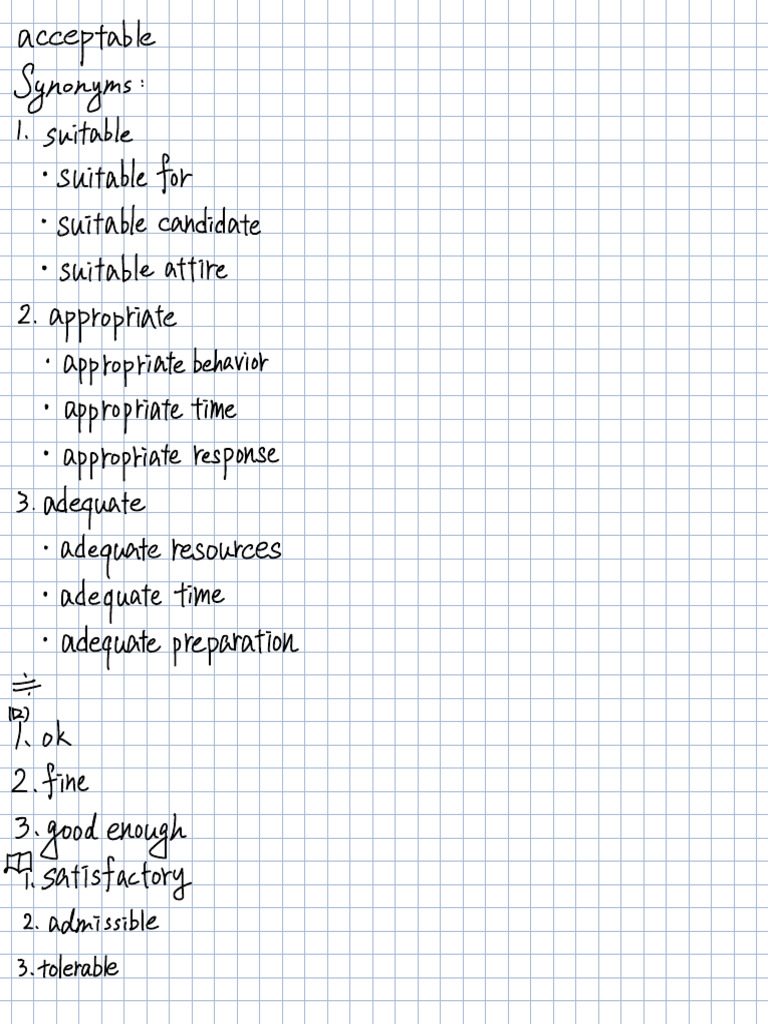 acceptable
Synonyms:
1. suitable
· suitable for
· suitable candidate
· suitable attire
2. appropriate
· appropriate behavior
· appropriate time
· appropriate response
3. adequate
· adequate resources
· adequate time
· adequate preparation
≒
1. ok
2. fine
3. good enough
1. satisfactory
2. admissible
3. tolerable